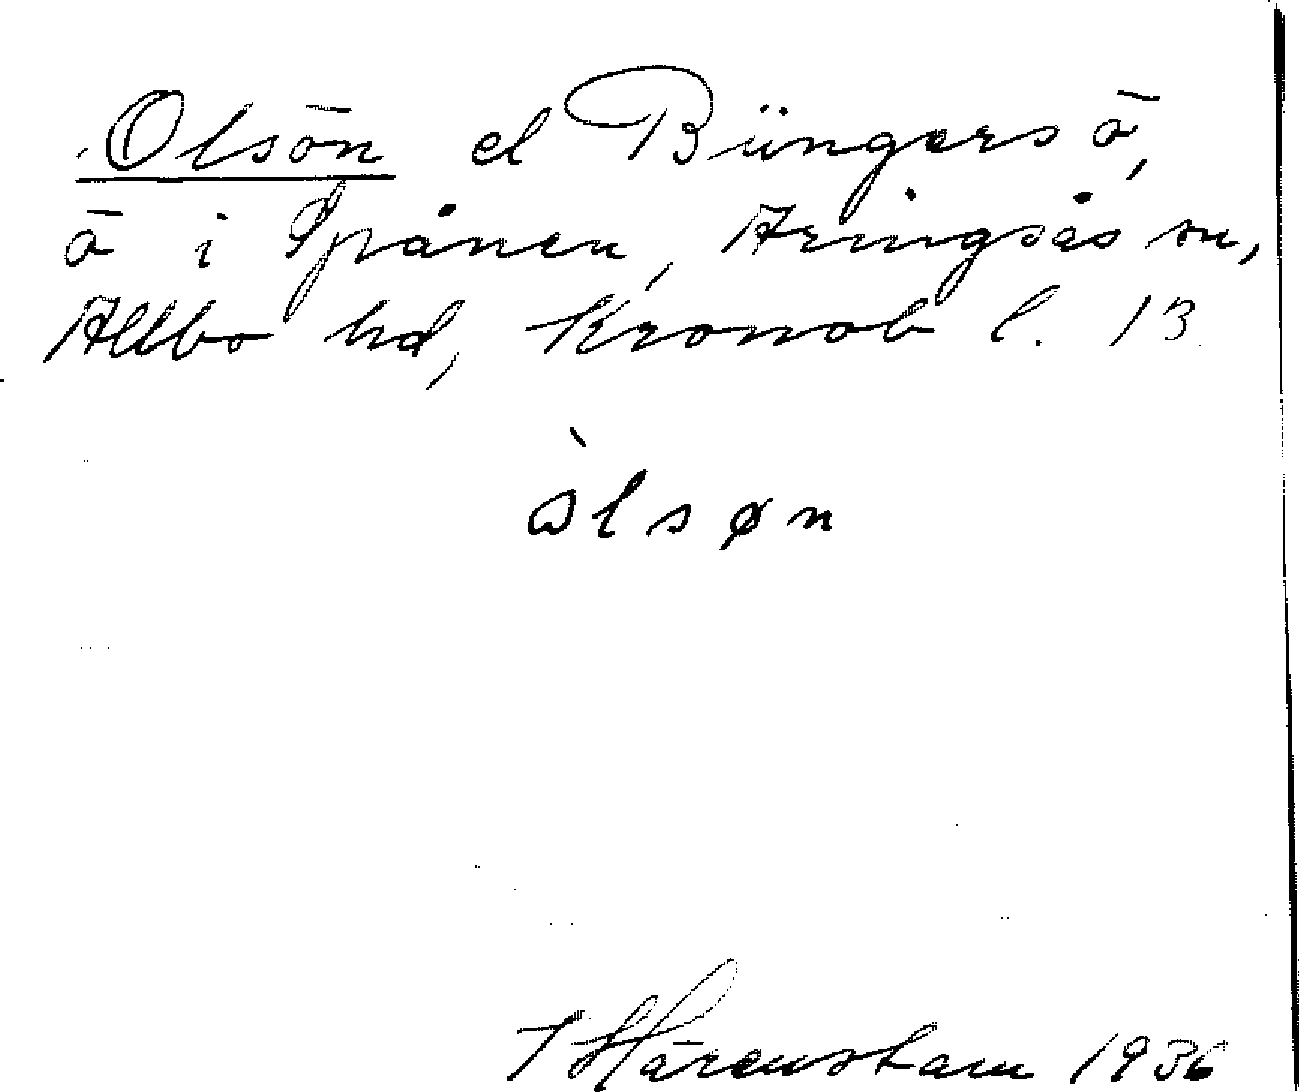 Olsön el Büngersö,
ö i Spånen, Aringsås sn,
Allbo hd, Kronob l. 13
òlsøn
T Härenstam 1936